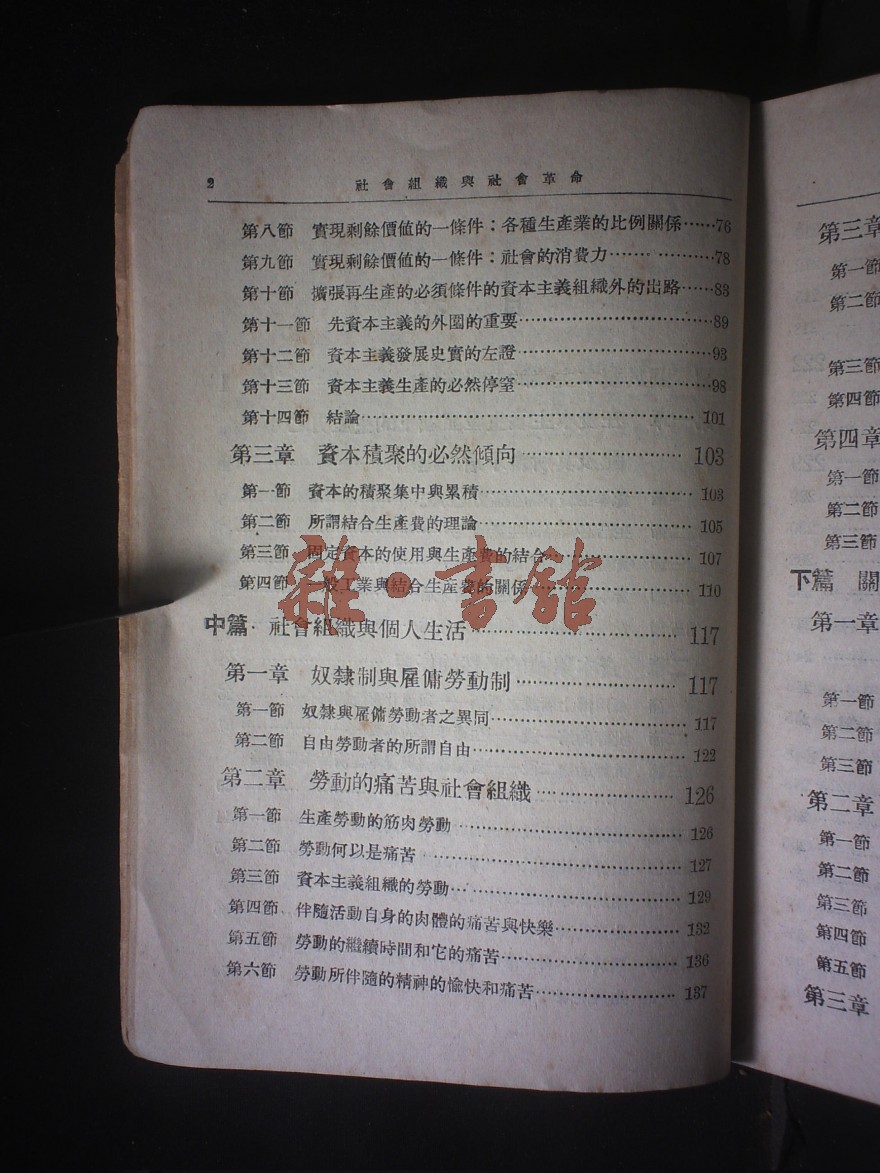 2 社會組織與社會革命
第八節 實現剩餘價值的一條件：各種生產業的比例關係……76
第九節 實現剩餘價值的一條件：社會的消費力……78
第十節 擴張再生產的必須條件的資本主義組織外的出路……83
第十一節 先資本主義的外圍的重要……89
第十二節 資本主義發展史實的左證……93
第十三節 資本主義生產的必然停窒……98
第十四節 結論……101
第三章 資本積聚的必然傾向……103
第一節 資本的積聚集中與累積……103
第二節 所謂結合生產費的理論……105
第三節 固定資本的使用與生產費的結合……107
第四節 一般工業與結合生產費的關係……110
雜·書館
中篇 社會組織與個人生活……117
第一章 奴隸制與雇傭勞動制……117
第一節 奴隸與雇傭勞動者之異同……117
第二節 自由勞動者的所謂自由……122
第二章 勞動的痛苦與社會組織……126
第一節 生產勞動的筋肉勞動……126
第二節 勞動何以是痛苦……127
第三節 資本主義組織的勞動……129
第四節 伴隨活動自身的肉體的痛苦與快樂……132
第五節 勞動的繼續時間和它的痛苦……136
第六節 勞動所伴隨的精神的愉快和痛苦……137
第三章
第一節
第二節
第三節
第四節
第四章
第一節
第二節
第三節
下篇 關
第一章
第一節
第二節
第三節
第二章
第一節
第二節
第三節
第四節
第五節
第三章